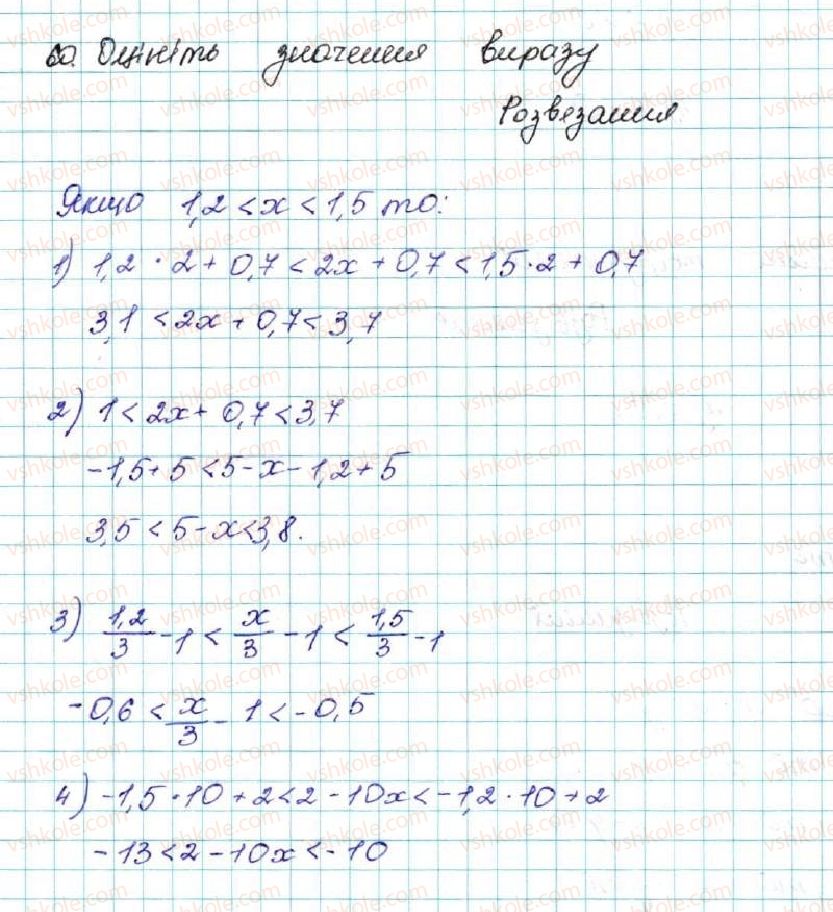 60. Оцініть значення виразу
Розвезання
Якщо 1,2 < x < 1,5 то:
1) 1,2 · 2 + 0,7 < 2x + 0,7 < 1,5 · 2 + 0,7
3,1 < 2x + 0,7 < 3,7
2) 1 < 2x + 0,7 < 3,7
-1,5 + 5 < 5 - x - 1,2 + 5
3,5 < 5 - x < 3,8.
3) 1,2/3 - 1 < x/3 - 1 < 1,5/3 - 1
-0,6 < x/3 - 1 < -0,5
4) -1,5 · 10 + 2 < 2 - 10x < -1,2 · 10 + 2
-13 < 2 - 10x < -10